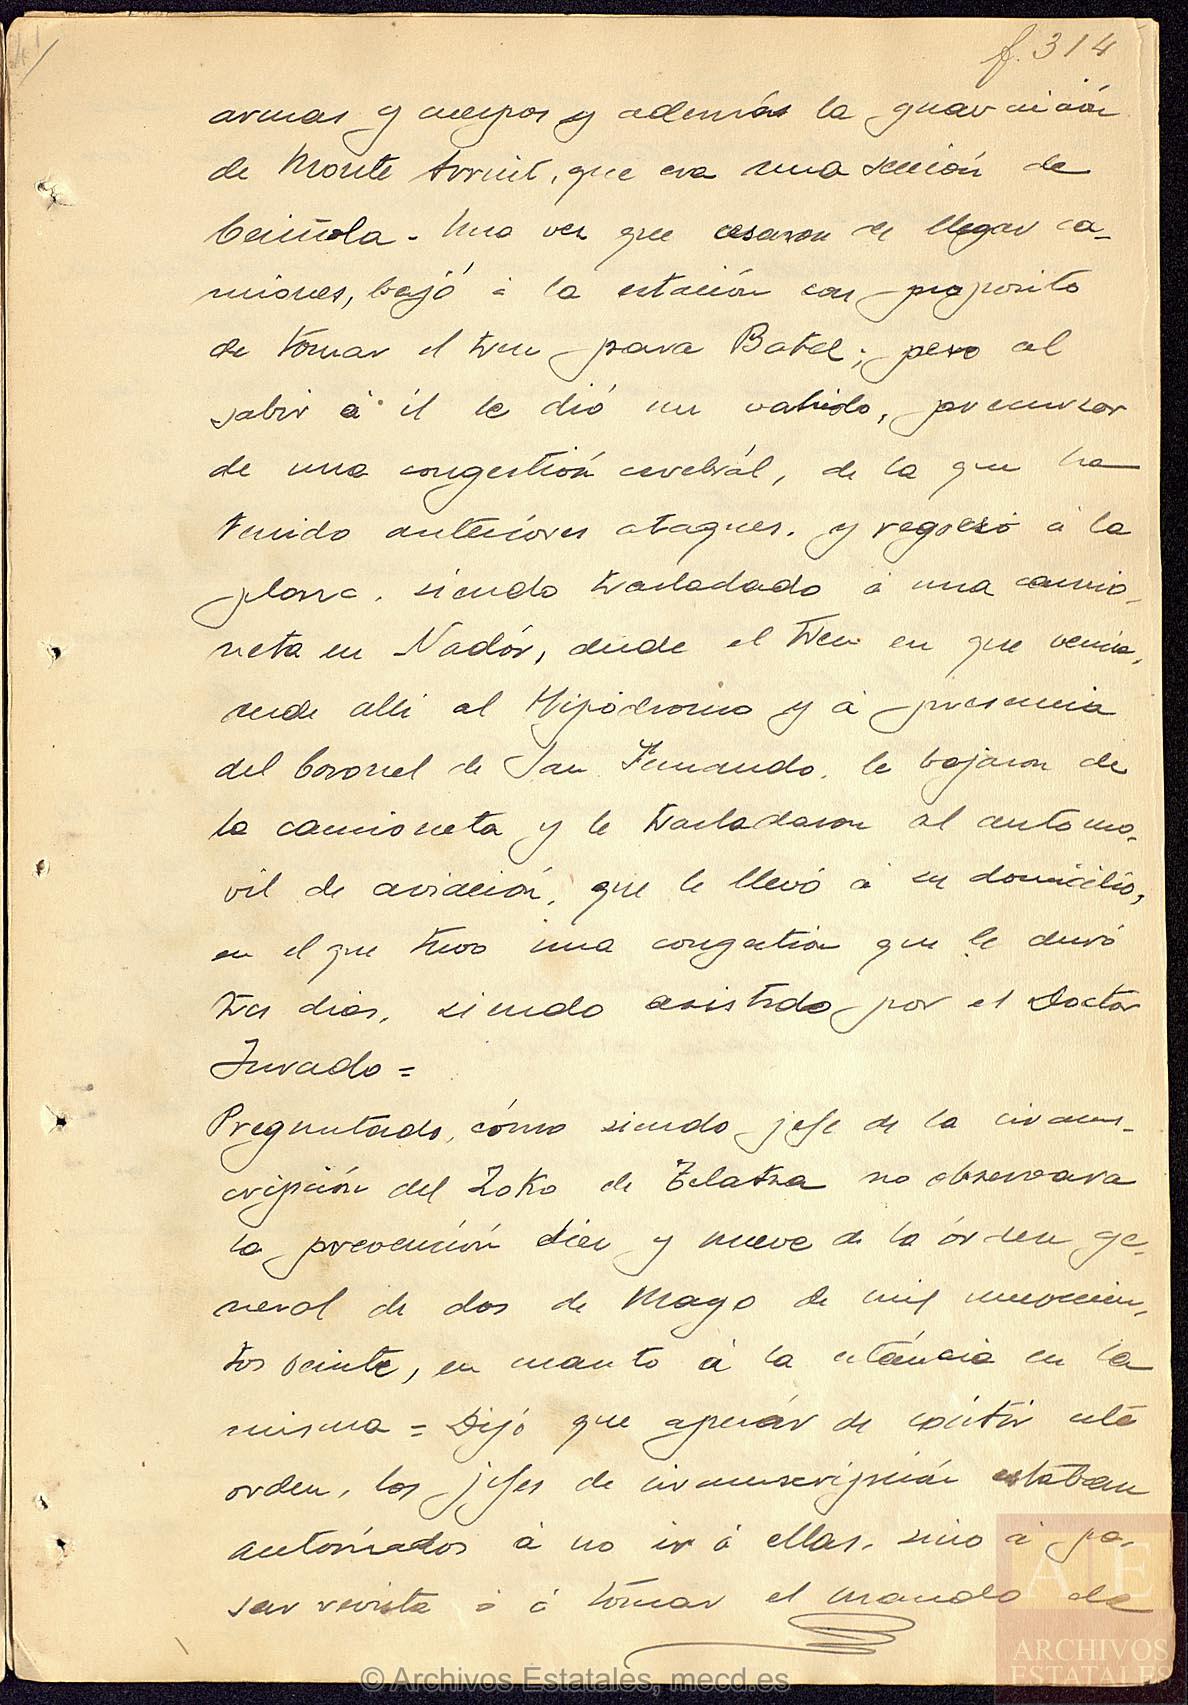 f. 314
armas y cuerpos y además la guarnición
de Monte Arruit, que era una sección de
Ceriñola - Una vez que cesaron de llegar ca-
miones, bajó á la estación con proposito
de tomar el tren para Batel; pero al
subir á él le dió un vahido, precursor
de una congestión cerebrál, de la que ha
tenido anteriores ataques, y regresó á la
plaza, siendo trasladado á una camio-
neta en Nadór, desde el tren en que venia,
desde alli al Hipódromo y á presencia
del Coronel de San Fernando, le bajaron de
la camioneta y le trasladaron al automo-
vil de aviación, que le llevó á su domicilio,
en el que tuvo una congestion que le duró
tres dias, siendo asistido por el Doctor
Jurado =
Preguntado, cómo siendo jefe de la circuns-
cripción del Zoko de Telatza no observara
la prevención diez y nueve de la órden ge-
neral de dos de Mayo de mil novecien-
tos veinte, en cuanto á la estáncia en la
misma = Dijo que apesár de existir esta
orden, los jefes de circunscripción estaban
autorizados á no ir á ellas, sino á pa-
sar revista ó á tomar el mando de
© Archivos Estatales, mecd.es
AE
ARCHIVOS
ESTATALES